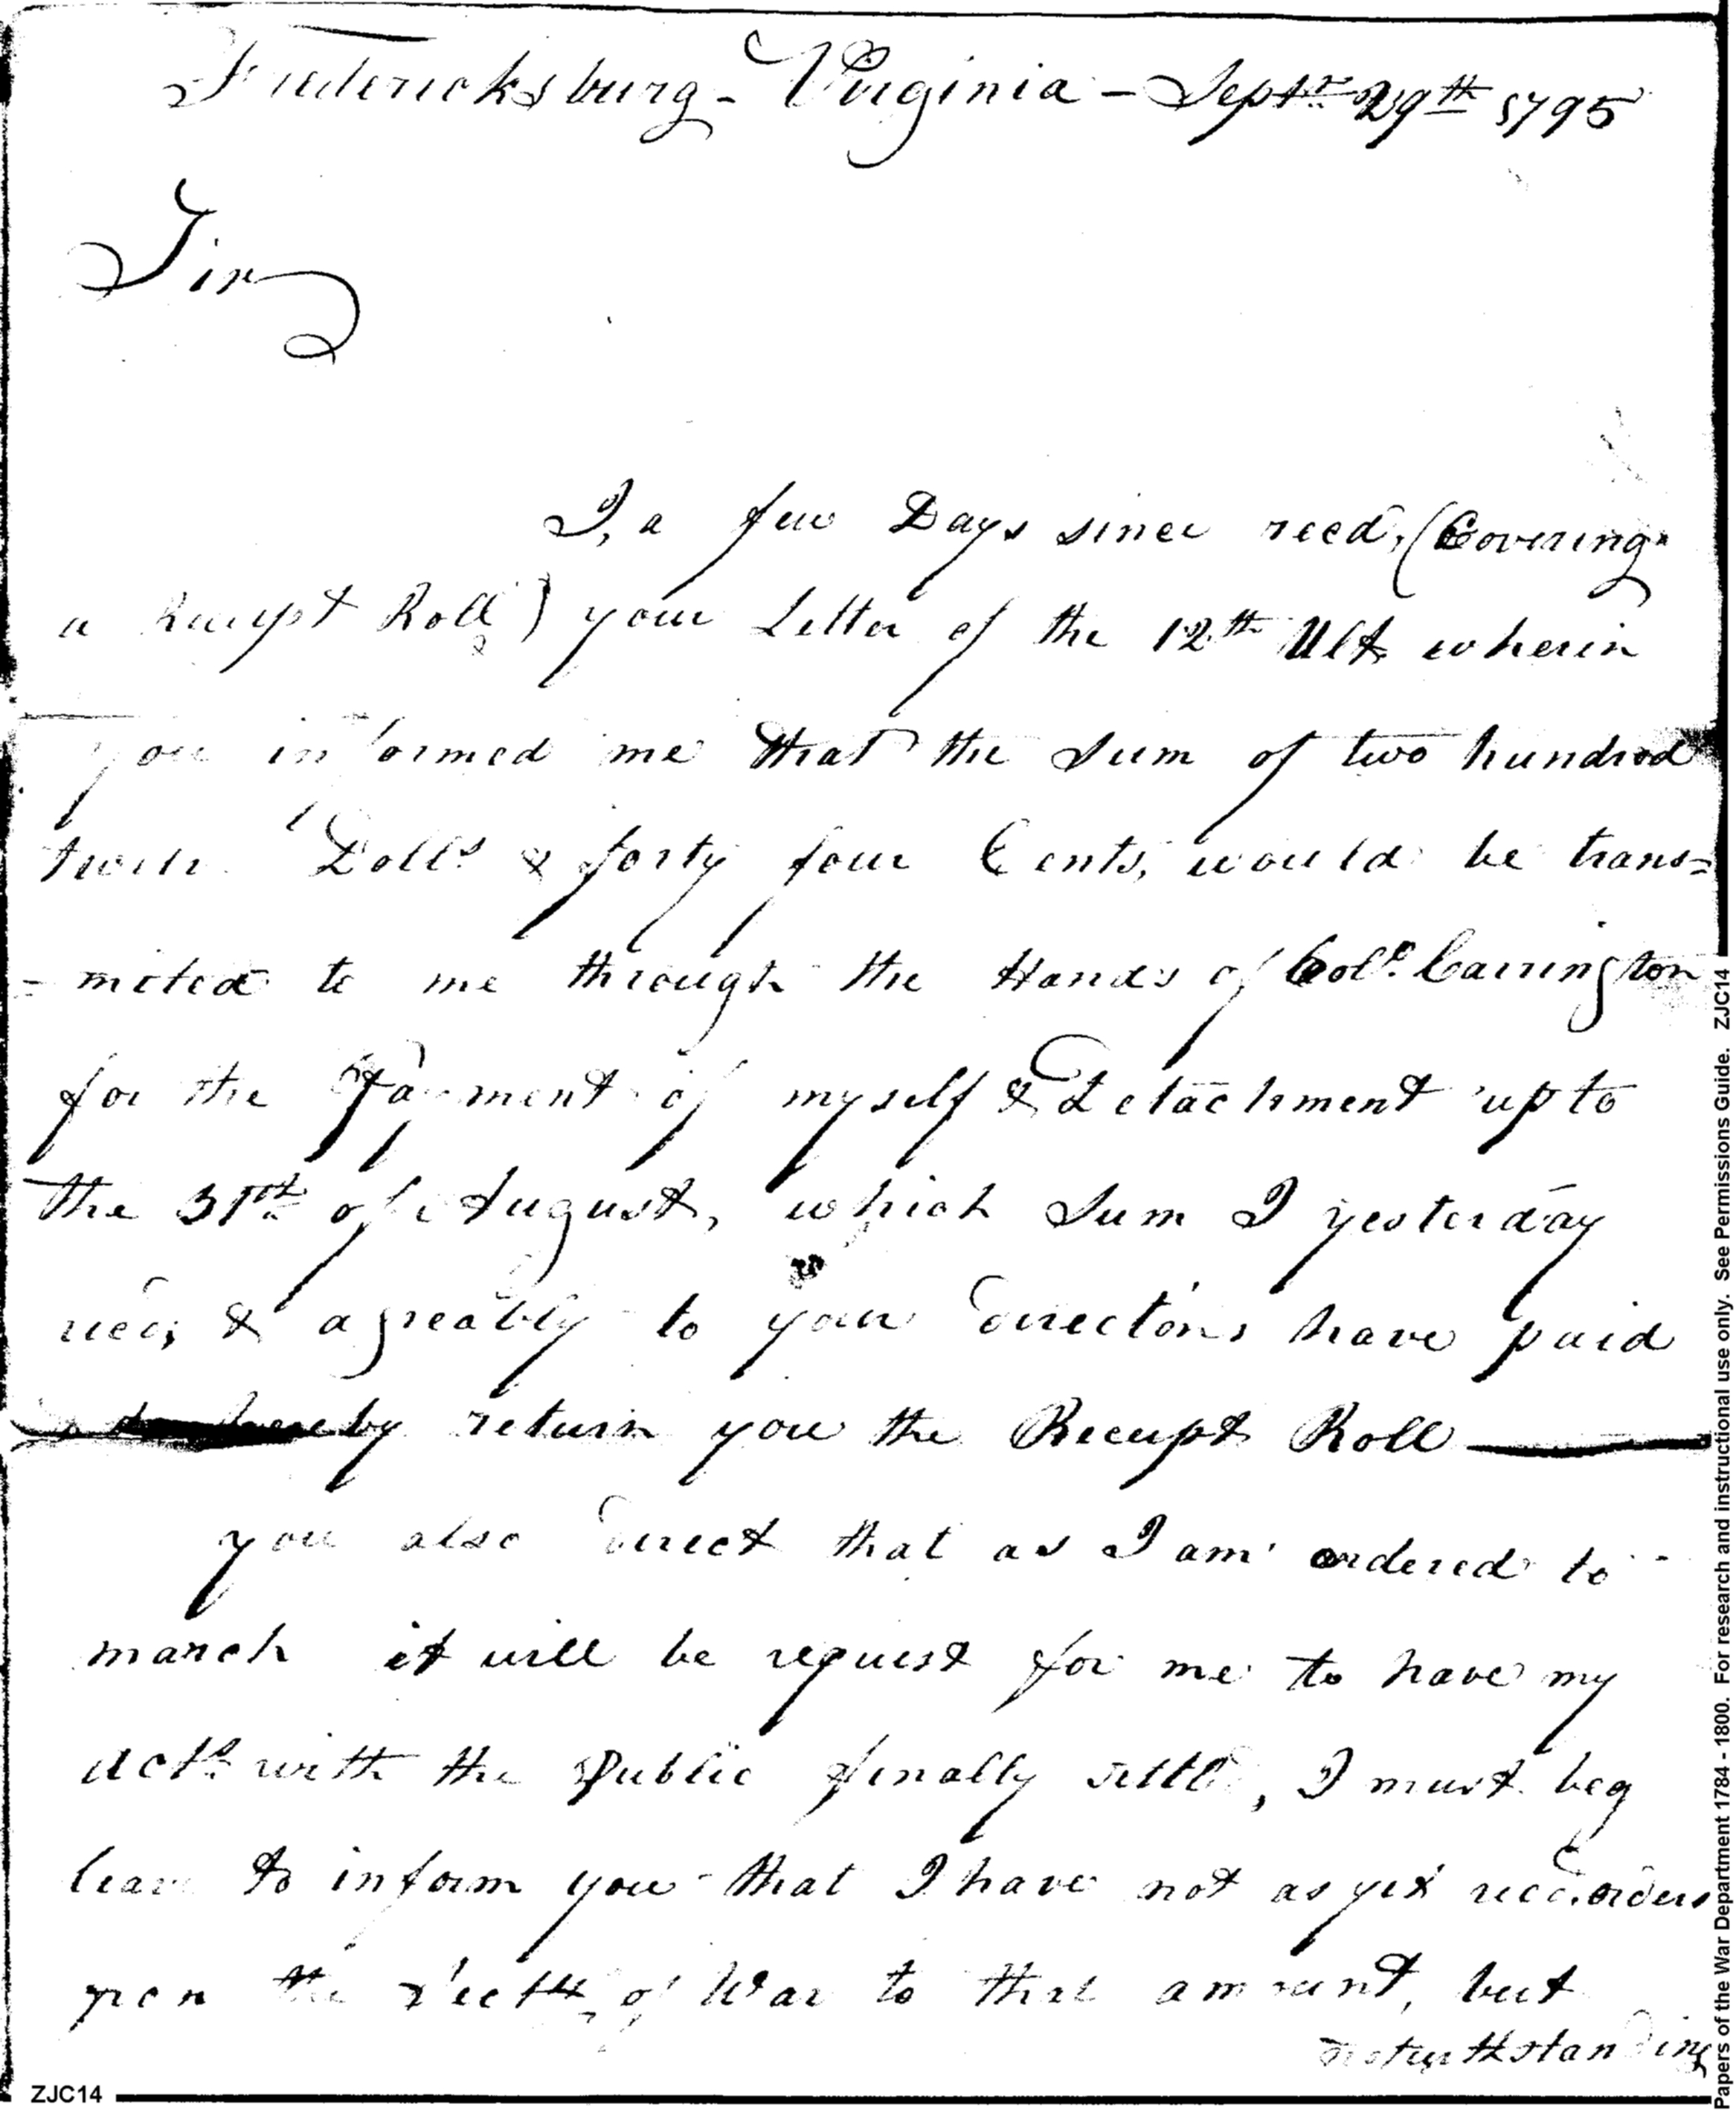 Fredericksburg - Virginia - Septr. 29th 1795
Sir
I, a few Days since recd, (Covering
a Receipt Roll) your Letter of the 12th Ult. wherein
you informed me that the Sum of two hundred
twelve Dolls & forty four Cents, would be trans=
=mited to me through the Hands of Colo. Carrington
for the Payment of myself & Detachment up to
the 31st of August, which Sum I yesterday
recd, & agreably to your directions have paid
hereby return you the Receipt Roll
you also direct that as I am ordered to
march it will be request for me to have my
Acts. with the Public finally settled, I must beg
leave to inform you that I have not as yet recd. orders
from the Secty of War to that amount, but
notwithstanding
ZJC14
Papers of the War Department 1784 - 1800. For research and instructional use only. See Permissions Guide. ZJC14